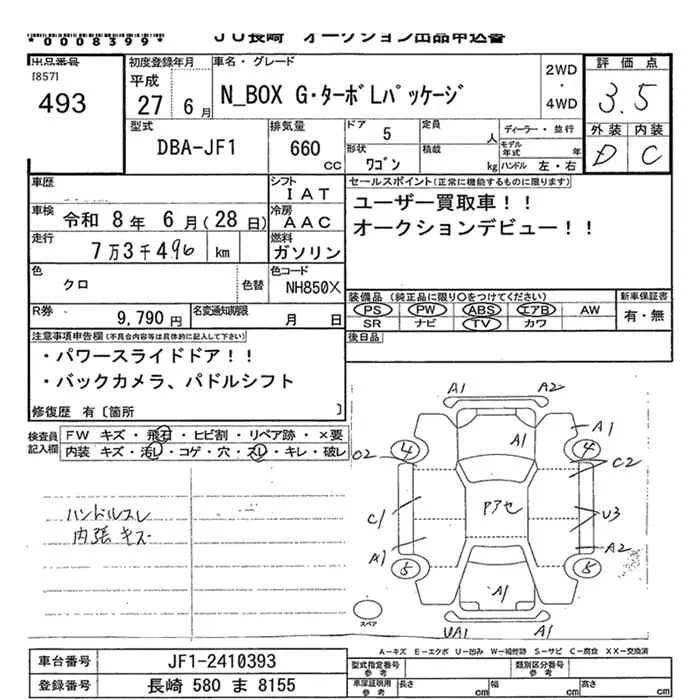 *0008399*
JU長崎 オークション出品申込書
出品番号
[857]
493
初度登録年月
平成
27 6月
車名・グレード
N_BOX G・ターボLパッケージ
2WD
・
4WD
評価点
3.5
外装 内装
D C
型式
DBA-JF1
排気量
660
cc
ドア 5
形状 ワゴン
定員 人
積載 kg
ディーラー・並行
モデル年式 年
ハンドル 左・右
車歴
車検 令和 8年 6月(28日)
走行 7万3千496 km
色
クロ
色替
シフト
IAT
冷房
AAC
燃料
ガソリン
色コード
NH850X
R券
9,790円
名変通知期限
月 日
セールスポイント(正常に機能するものに限ります)
ユーザー買取車!!
オークションデビュー!!
装備品(純正品に限り○をつけてください)
PS PW ABS エアB AW
SR ナビ TV カワ
新車保証書
有・無
後日品
注意事項申告欄(不具合内容等は具体的に記入して下さい)
・パワースライドドア!!
・バックカメラ、パドルシフト
修復歴 有〔箇所 〕
検査員記入欄
FW キズ・飛石・ヒビ割・リペア跡・×要
内装 キズ・汚レ・コゲ・穴・スレ・キレ・破レ
ハンドルスレ
内張キズ
A1 A2
A1
A1
4 4
C2 C2
C1
Pアセ
U3
A1 A2
5 5
A1
スペア
UA1 A1
A-キズ E-エクボ U-凹み W-補修跡 S-サビ C-腐食 XX-交換済
車台番号 JF1-2410393
登録番号 長崎 580 ま 8155
型式指定番号 参考
類別区分番号 参考
車庫証明用 参考
長さ cm
幅 cm
高さ cm